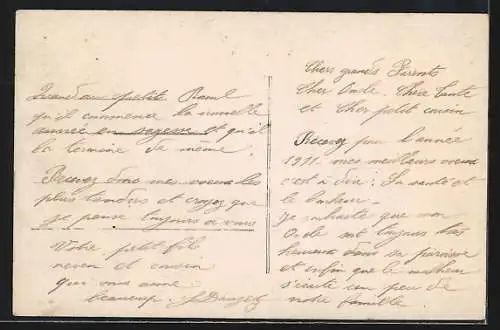 Chers grands Parents
Cher Oncle. Chère Tante
et Cher petit cousin
Recevez pour l'année
1911. mes meilleurs voeux
c'est à dire : La santé et
le bonheur.
Je souhaite que mon
Oncle soit toujours très
heureux dans sa paroisse
et enfin que le malheur
s'écarte un peu de
notre famille
Quand au petit Raoul
qu'il commence la nouvelle
année en sagesse et qu'il
la termine de même.
Recevez donc mes voeux les
plus tendres et croyez que
je pense toujours à vous
Votre petit fils
neveu et cousin
qui vous aime
beaucoup